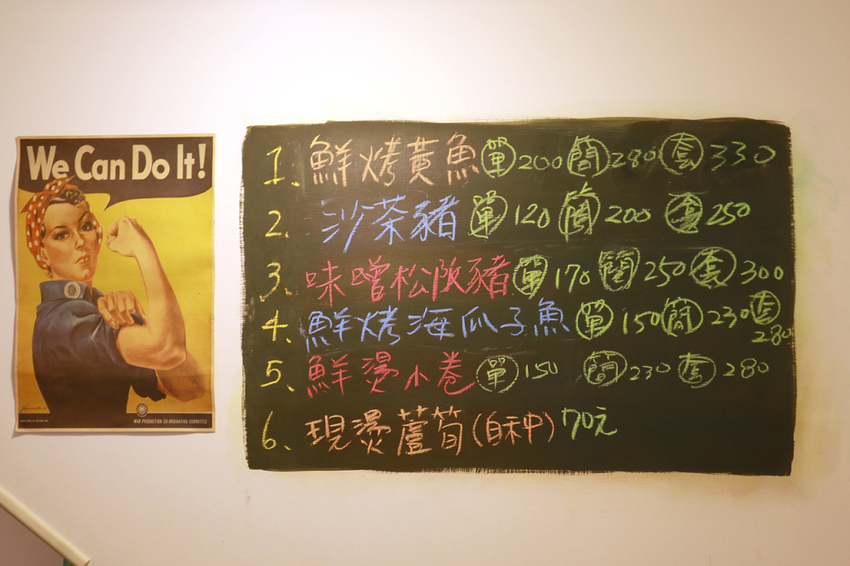 We Can Do It!
WAR PRODUCTION CO-ORDINATING COMMITTEE
1、鮮烤黃魚 單 200 簡 280 套 330
2、沙茶豬 單 120 簡 200 套 250
3、味噌松阪豬 單 170 簡 250 套 300
4、鮮烤海瓜子魚 單 150 簡 230 套 280
5、鮮燙小卷 單 150 簡 230 套 280
6、現燙蘆筍(自禾中) 70元